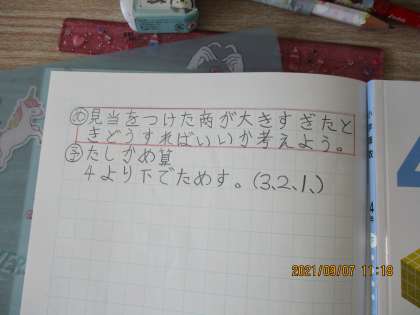 め 見当をつけた商が大きすぎたと
きどうすればいいか考えよう。
予 たしかめ算
4より下でためす。(3、2、1、)
2021/09/07 11:18